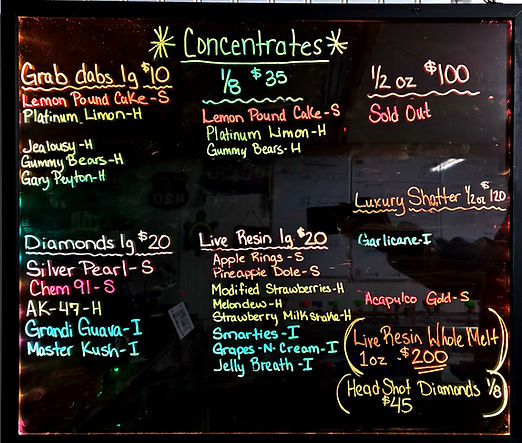 Concentrates
Grab dabs 1g $10
Lemon Pound Cake - S
Platinum Limon - H
Jealousy - H
Gummy Bears - H
Gary Peyton - H
1/8 $35
Lemon Pound Cake - S
Platinum Limon - H
Gummy Bears - H
1/2 oz $100
Sold Out
Luxury Shatter 1/2 oz $120
Garlicane - I
Acapulco Gold - S
Diamonds 1g $20
Silver Pearl - S
Chem 91 - S
AK-47 - H
Grandi Guava - I
Master Kush - I
Live Resin 1g $20
Apple Rings - S
Pineapple Dole - S
Modified Strawberries - H
Melondew - H
Strawberry Milkshake - H
Smarties - I
Grapes-N-Cream - I
Jelly Breath - I
(Live Resin Whole Melt)
1oz $200
(Head Shot Diamonds 1/8)
$45